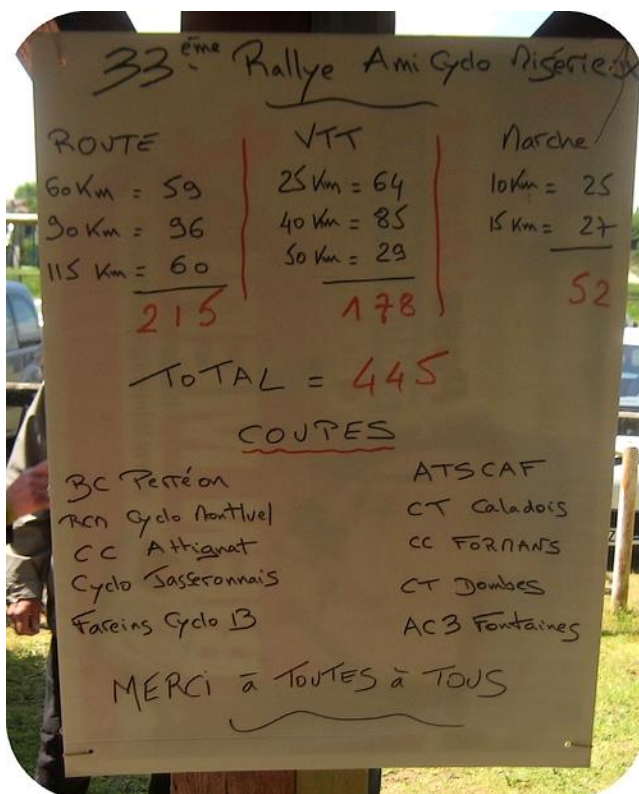 33ème Rallye Ami Cyclo Misérieux
ROUTE
60 Km = 59
90 Km = 96
115 Km = 60
215
VTT
25 Km = 64
40 Km = 85
50 Km = 29
178
Marche
10 Km = 25
15 Km = 27
52
TOTAL = 445
COUPES
BC Perréon
RCM Cyclo Montluel
CC Attignat
Cyclo Jasseronnais
Fareins Cyclo 13
ATSCAF
CT Caladois
CC FORMANS
CT Dombes
AC3 Fontaines
MERCi à TOUTES à TOUS